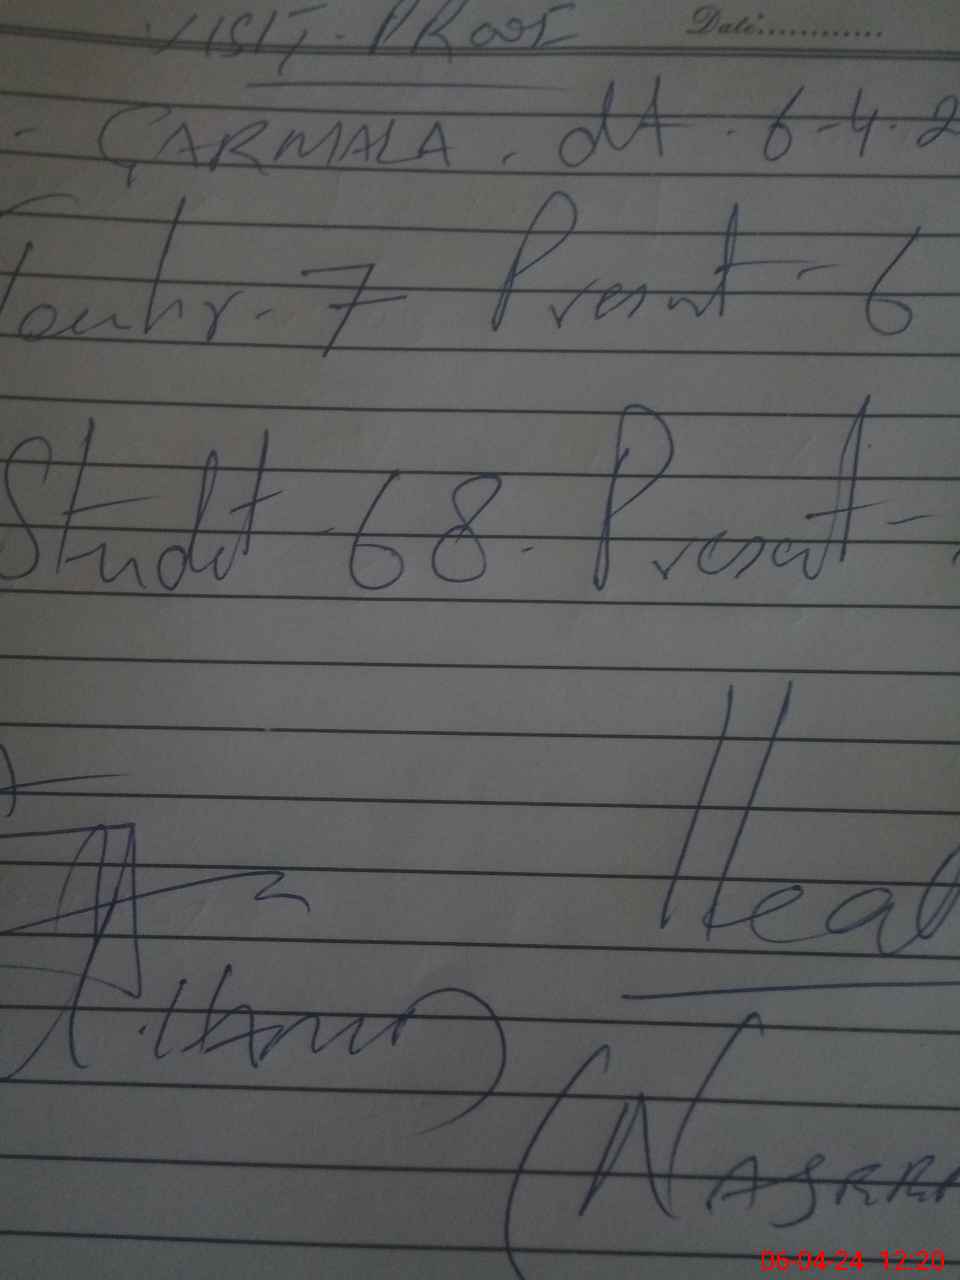 VISIT, PROOF Date............
- GARMALA. dt. 6-4.2
Teachr. 7 Present - 6
Studt - 68. Present -
Head
(NASRRA
06-04-24 12:20